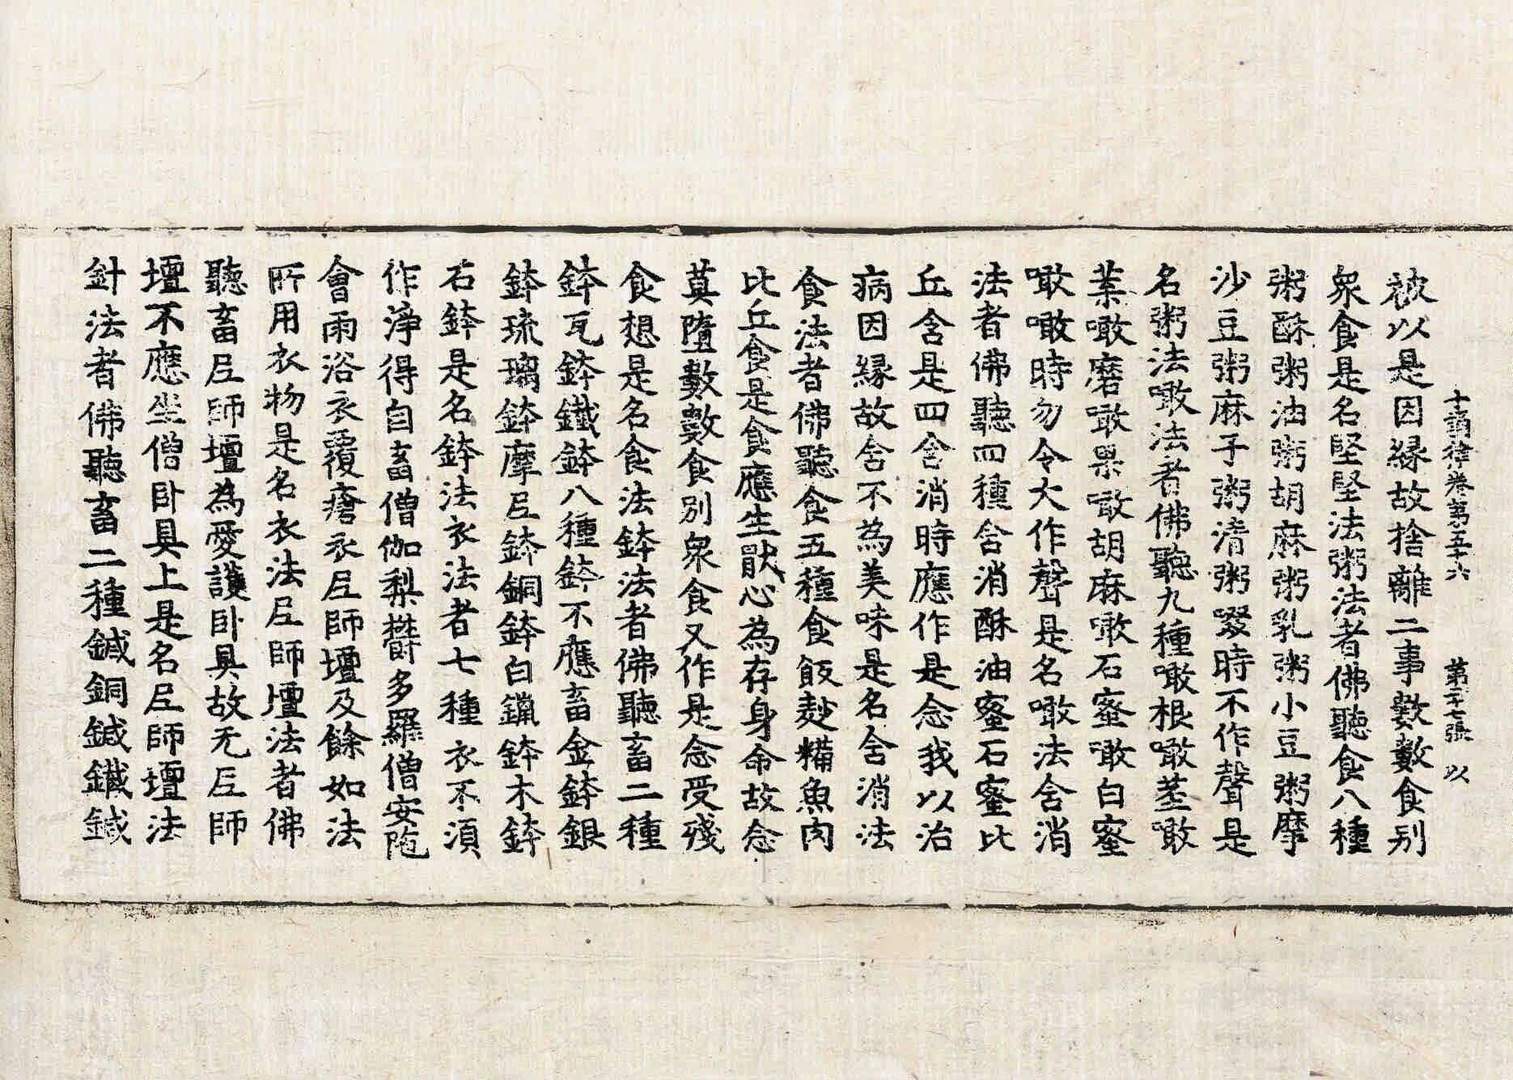 十誦律卷第五十六　第二十七張　以
被以是因緣故捨離二事數數食別
衆食是名堅堅法粥法者佛聽食八種
粥酥粥油粥胡麻粥乳粥小豆粥摩
沙豆粥麻子粥清粥啜時不作聲是
名粥法噉法者佛聽九種噉根噉莖噉
葉噉磨噉果噉胡麻噉石蜜噉白蜜
噉噉時勿令大作聲是名噉法含消
法者佛聽四種含消酥油蜜石蜜比
丘含是四含消時應作是念我以治
病因緣故含不為美味是名含消法
食法者佛聽食五種食飯麨糒魚肉
比丘食是食應生猒心為存身命故念
莫墮數數食別衆食又作是念受殘
食想是名食法鉢法者佛聽畜二種
鉢瓦鉢鐵鉢八種鉢不應畜金鉢銀
鉢琉璃鉢摩尼鉢銅鉢白鑞鉢木鉢
石鉢是名鉢法衣法者七種衣不湏
作淨得自畜僧伽梨欝多羅僧安陁
會雨浴衣覆瘡衣尼師壇及餘如法
所用衣物是名衣法尼師壇法者佛
聽畜尼師壇為愛護卧具故无尼師
壇不應坐僧卧具上是名尼師壇法
針法者佛聽畜二種鍼銅鍼鐵鍼